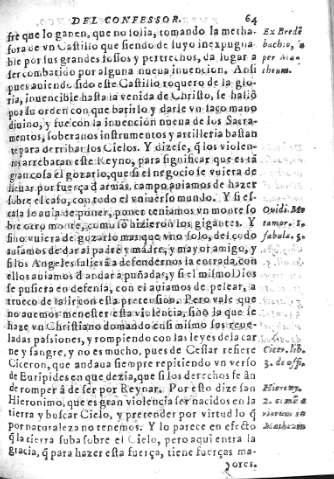 DEL CONFESSOR. 64
fre que lo ganen, que no solia, tomando la metha-
fora de vn Castillo que siendo de suyo inexpugna
ble por sus grandes fossos y pertrechos, da lugar a
ser combatido por alguna nueua inuencion. Ansi
pues auiendo sido este Castillo roquero de la glo-
ria, inuencible hasta la venida de Christo, se hallò
por su orden con que batirlo y darle vn saco mano
diuino, y fue con la inuencion nueua de los Sacra-
mentos, soberanos instrumentos y artilleria bastan
te para derribar los Cielos. Y dizese, q̃ los violen-
tos arrebatan este Reyno, para significar que es tã
gran cosa el gozarlo, que si el negocio se vuiera de
lleuar por fuerça d̃ armas, campo auiamos de hazer
sobre el caso, con todo el vniuerso mundo. Y si es-
cala se auia de poner, poner teniamos vn monte so
bre otro monte, como lo hizieron los gigantes. Y
sino vuiera de gozarlo mas que vno solo, del codo
auiamos de dar al padre y madre, y mayor amigo, y
si los Angeles salieran a defendernos la entrada, con
ellos auiamos d̃ andar a puñadas, y si el mismo Dios
se pusiera en defensa, con el auiamos de pelear, a
trueco de salir con esta pretension. Pero vale que
no auemos menester esta violencia, sino la que se
haze vn Christiano domando en si mismo sus reue-
ladas passiones, y rompiendo con las leyes de la car
ne y sangre, y no es mucho, pues de Cesar refiere
Ciceron, que andaua siempre repitiendo vn verso
de Euripides en que dezia, que si los derechos se ãn
de romper à de ser por Reynar. Por esto dize san
Hieronimo, que es gran violencia ser nacidos en la
tierra y buscar Cielo, y pretender por virtud lo q̃
por naturaleza no tenemos. Y lo parece en efecto
q̃ la tierra suba sobre el Cielo, pero aqui entra la
gracia, q̃ para hazer esta fuerça, tiene fuerças ma-
yores.
Ex Bredē
bachio,
per
Ouidi. Me
tamor. 1.
fabula. 5.
Cicer. lib.
3. de offi.
Hierony.
Mathæum